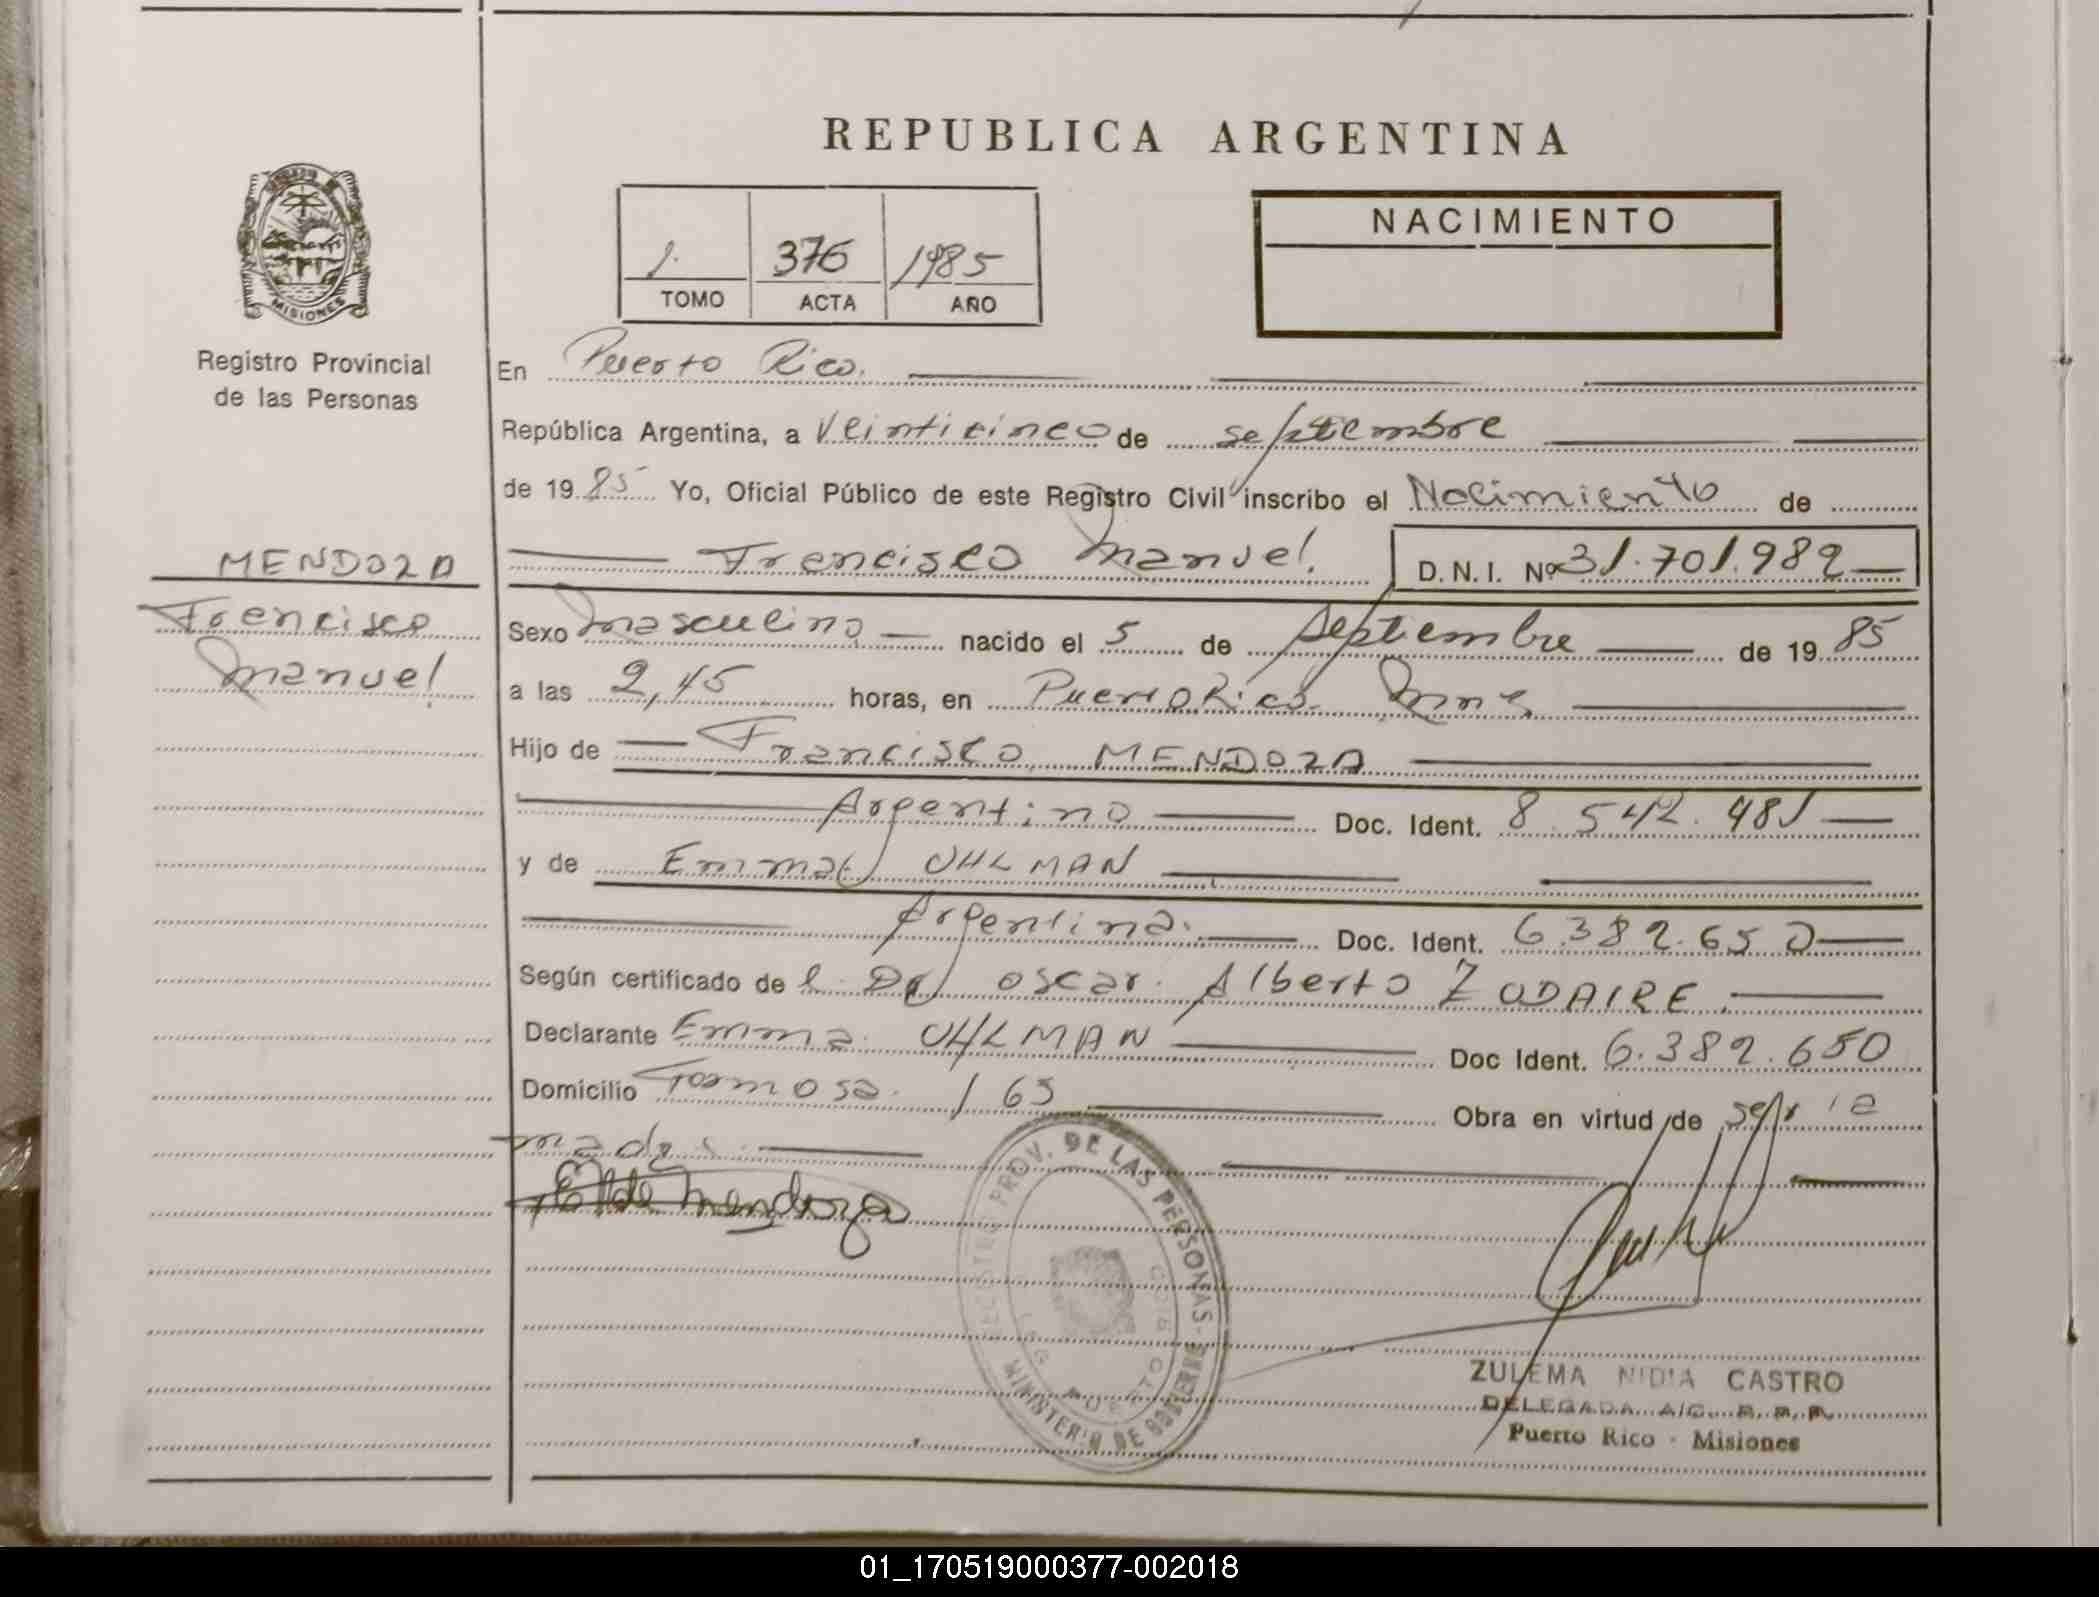 REPUBLICA ARGENTINA
MISIONES
Registro Provincial
de las Personas
1. 376 1985
TOMO ACTA AÑO
NACIMIENTO
En Puerto Rico.
República Argentina, a Veinticinco de septiembre
de 19 85 Yo, Oficial Público de este Registro Civil inscribo el Nacimiento de
MENDOZA
Francisco Manuel. D.N.I. Nº 31.701.982
Francisco
Manuel.
Sexo Masculino nacido el 5 de Septiembre de 19 85
a las 2,45 horas, en Puerto Rico. Mnes
Hijo de Francisco MENDOZA
Argentino Doc. Ident. 8.542.481
y de Emma UHLMAN
Argentina. Doc. Ident. 6.382.650
Según certificado de l Dr Oscar Alberto ZUDAIRE.
Declarante Emma UHLMAN Doc Ident. 6.382.650
Domicilio Formosa. 165 Obra en virtud de ser la
madre.
E U de Mendoza
PROV. DE LAS PERSONAS - MINISTERIO DE GOBIERNO
ZULEMA NIDIA CASTRO
DELEGADA A/C. R. P. P.
Puerto Rico - Misiones
01_170519000377-002018